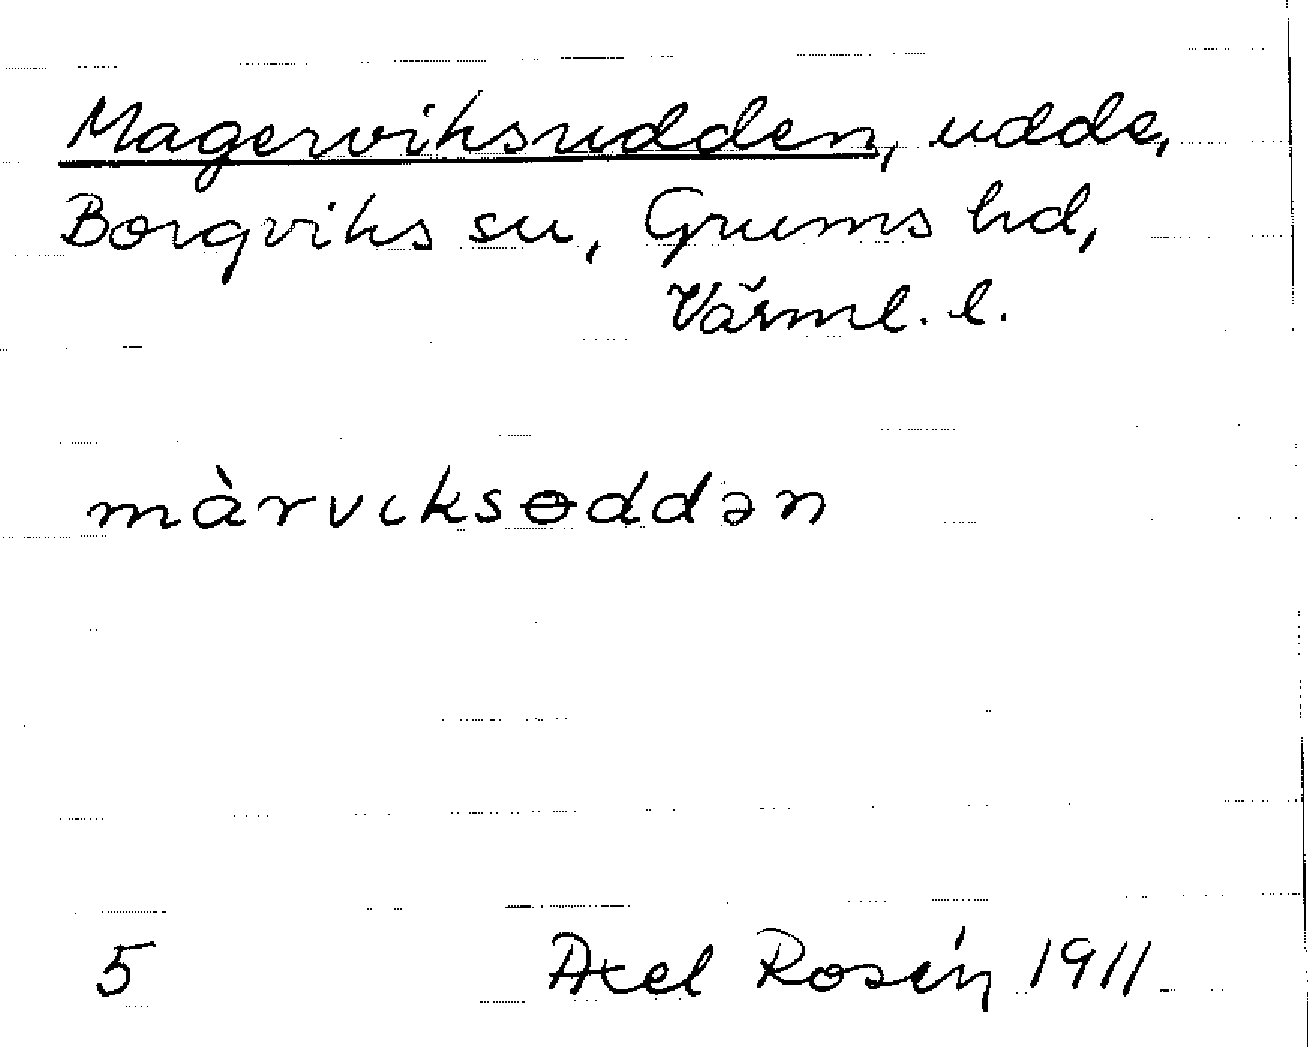 Magerviksudden, udde,
Borgviks sn, Grums hd,
Värml. l.
màrvıksɵddən
5 Axel Rosén 1911